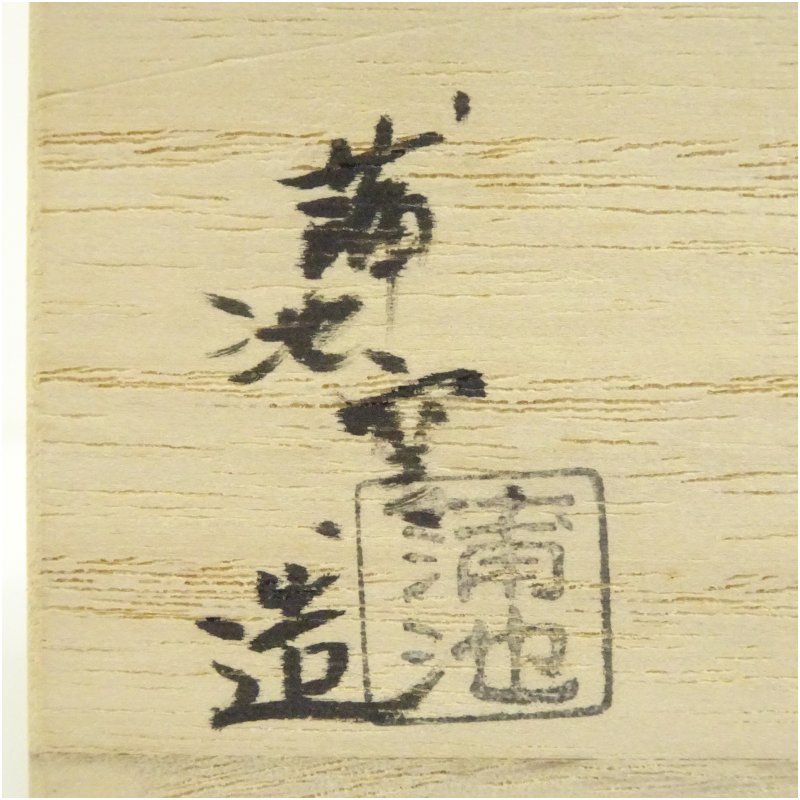 蒲池窯造
蒲池